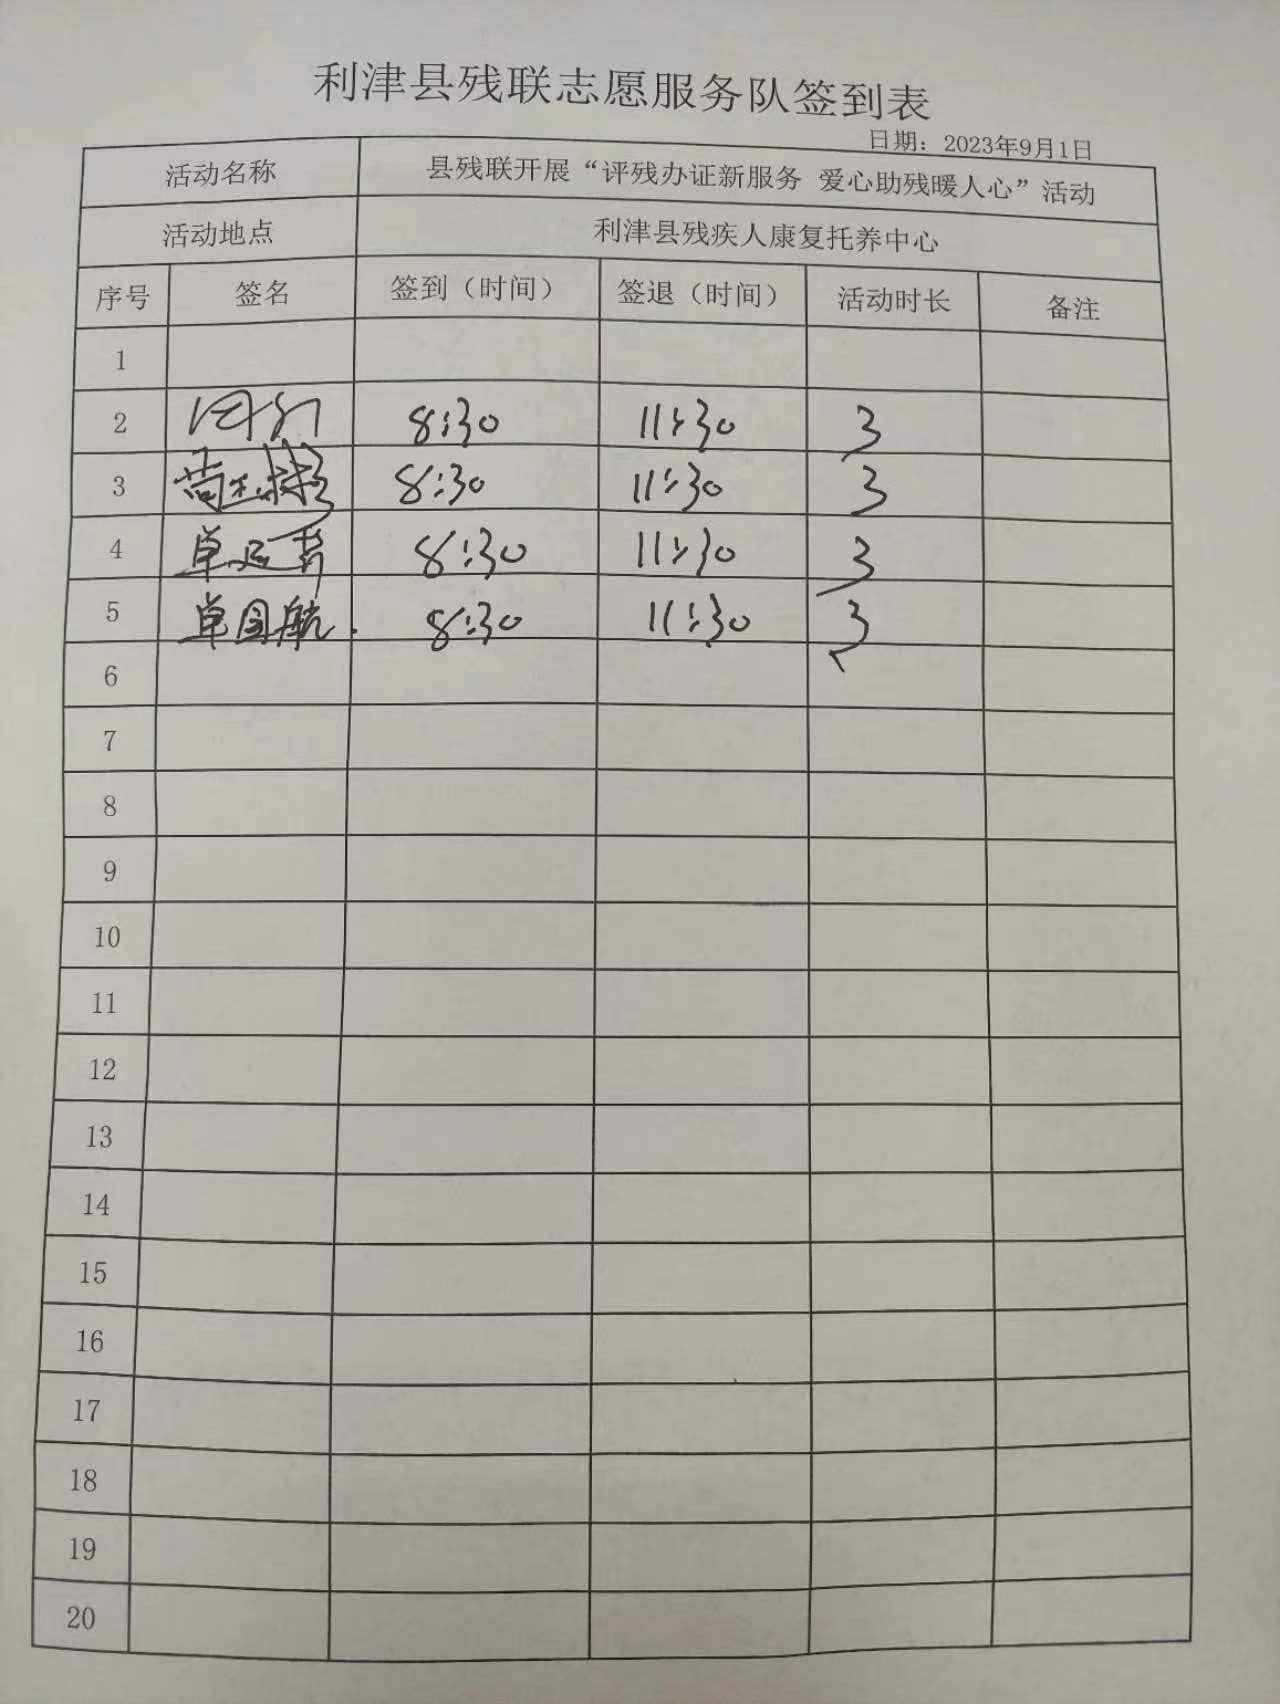 利津县残联志愿服务队签到表
日期：2023年9月1日
活动名称 县残联开展“评残办证新服务 爱心助残暖人心”活动
活动地点 利津县残疾人康复托养中心
序号 签名 签到（时间） 签退（时间） 活动时长 备注
1
2 8:30 11:30 3
3 8:30 11:30 3
4 8:30 11:30 3
5 卓国航 8:30 11:30 3
6
7
8
9
10
11
12
13
14
15
16
17
18
19
20